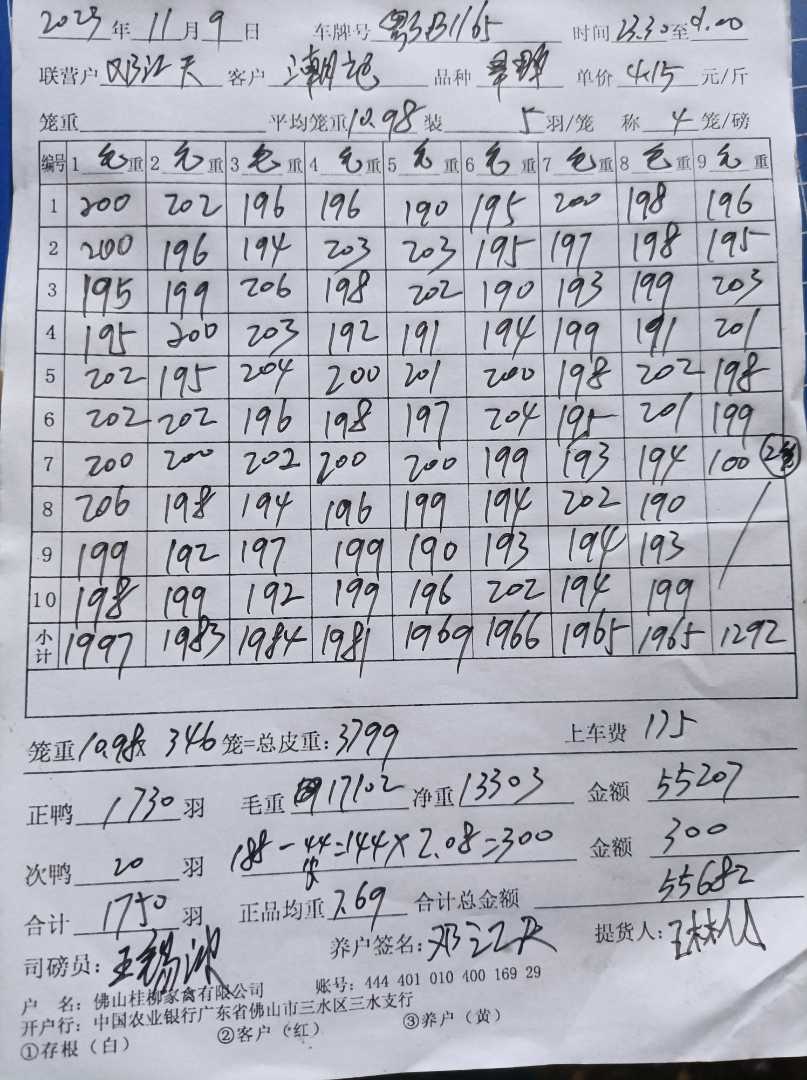 2023年 11月 9日 车牌号 粤 1165 时间 23.30至9.00
联营户 邓江天 客户 潮 品种 单价 4.15 元/斤
笼重 平均笼重10.98 装 5 羽/笼 称 4 笼/磅
编号 1 毛重 2 毛重 3 毛重 4 毛重 5 毛重 6 毛重 7 毛重 8 毛重 9 毛重
1 200 202 196 196 190 195 200 198 196
2 200 196 194 203 203 195 197 198 195
3 195 199 206 198 202 190 193 199 203
4 195 200 203 192 191 194 199 191 201
5 202 195 204 200 201 200 198 202 198
6 202 202 196 198 197 204 195 201 199
7 200 200 202 200 200 199 193 194 100 2笼
8 206 198 194 196 199 194 202 190
9 199 192 197 199 190 193 194 193
10 198 199 192 199 196 202 194 199
小计 1997 1983 1984 1981 1969 1966 1965 1965 1292
笼重 10.98x 346 笼=总皮重：3799 上车费 175
正鸭 1730 羽 毛重 17102 净重 13303 金额 55207
次鸭 20 羽 188-44=144×2.08=300 金额 300
合计 1750 羽 正品均重 7.69 合计总金额 55682
司磅员： 王锡 养户签名：邓江天 提货人：王林
户 名：佛山桂柳家禽有限公司 账号：444 401 010 400 169 29
开户行：中国农业银行广东省佛山市三水区三水支行
①存根（白） ②客户（红） ③养户（黄）